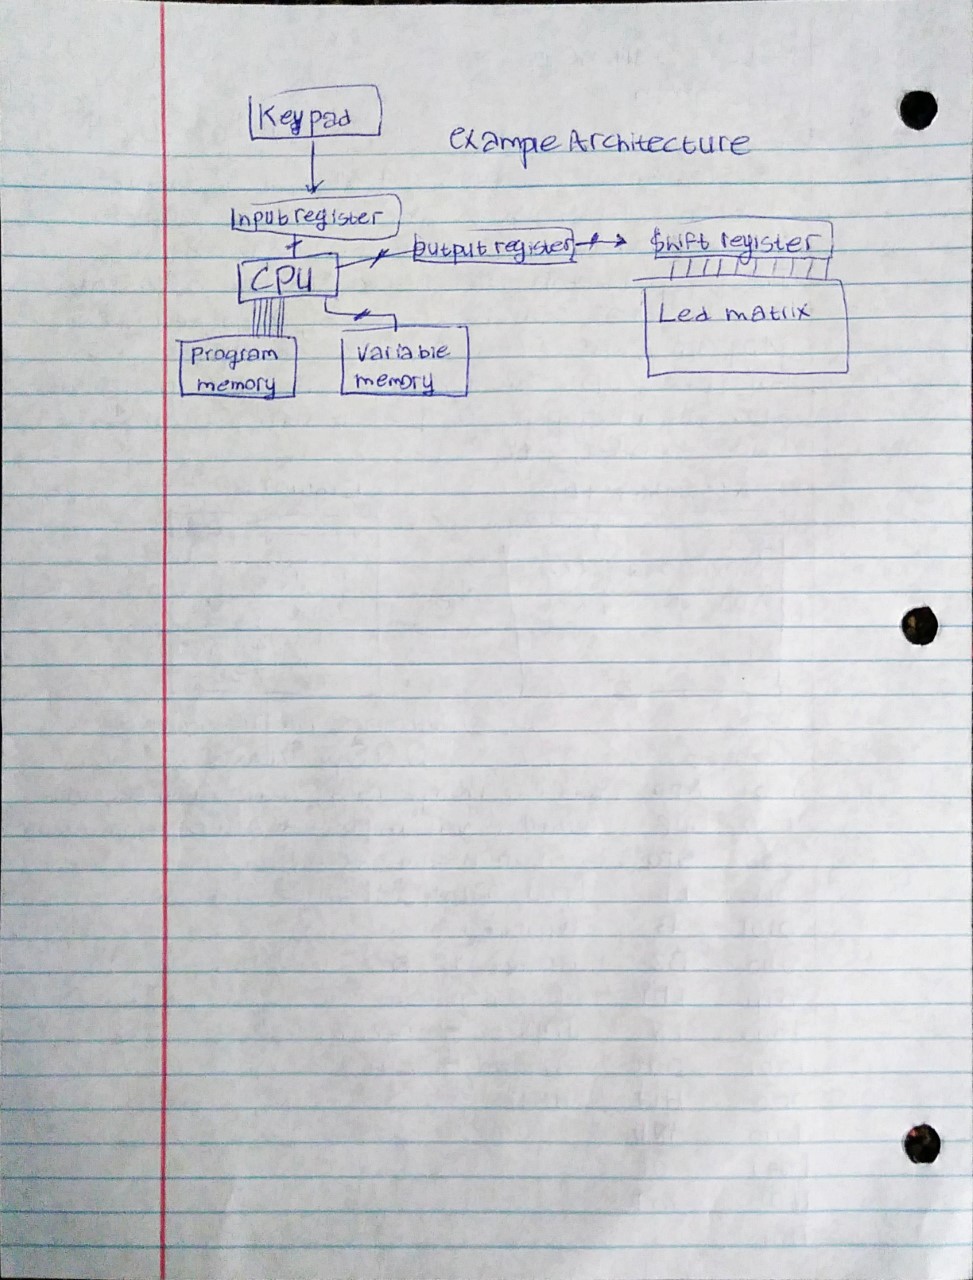 Keypad
Example Architecture
Input register
Output register
Shift register
CPU
Led matrix
Program
memory
Variable
memory